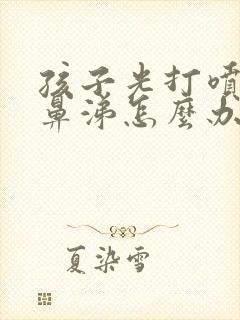 孩子光打噴
鼻涕怎麼办
夏染雪